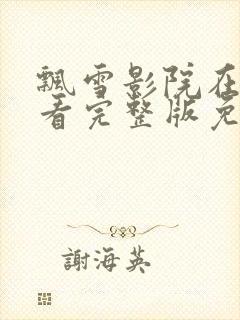 飄雪影院在
看完整版免
謝海英